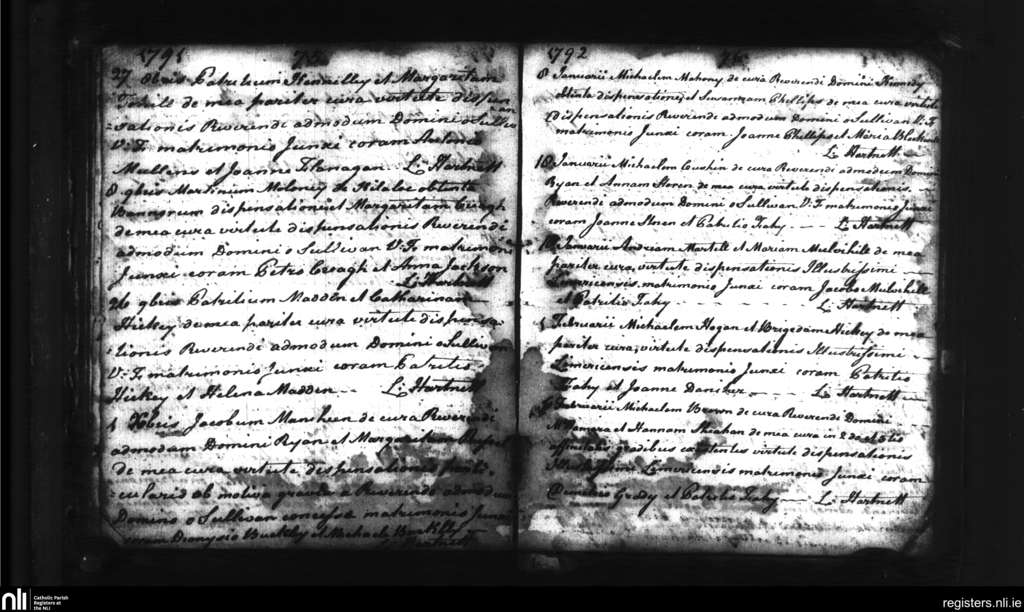 1791 75
27 8bris Patricium Kennelley et Margaritam
de mea pariter cura virtute dispen
sationis Reverendi admodum Domini o Sullivan
V: F. matrimonio Junxi coram
Mullins et Joanne Flanagan. L: Hartnett
8 9bris Martinum Moloney de Kilaloe obtenta
Bannorum dispensatione et Margaritam Creagh
de mea cura virtute dispensationis Reverendi
admodum Domini o Sullivan V: F. matrimonio
Junxi coram Petro Creagh et Anna Jackson
L: Hartnett
26 9bris Patritium Madden et Catharinam
Hickey de mea pariter cura virtute dispensa
tionis Reverendi admodum Domini o Sullivan
V: F. matrimonio Junxi coram Patritio
Hickey et Helena Madden — L: Hartnett
1 Xbris Jacobum Mansheen de cura Reverendi
admodum Domini Ryan et Margaritam
de mea cura virtute dispensationis parti
cularis ob motiva gravia a Reverendo admodum
Domino o Sullivan concessæ matrimonio Junxi
coram Dionysio Buckley et Michaele Buckley
Hartnett
1792 76
8 Januarii Michaelem Mahony de cura Reverendi Domini Kennedy
obtenta dispensatione, et Susannam Phillips de mea cura virtute
dispensationis Reverendi admodum Domini o Sullivan V: F.
matrimonio Junxi coram Joanne Phillips et Maria
L: Hartnett
18 Januarii Michaelem Coushin de cura Reverendi admodum Domini
Ryan et Annam Heren de mea cura virtute dispensationis
Reverendi admodum Domini o Sullivan V: F. matrimonio Junxi
coram Joanne Heren et Patritio Fahy — L: Hartnett
Januarii Andream Martell et Mariam Mulvihill de mea
pariter cura, virtute dispensationis Illustrissimi
Limericensis matrimonio Junxi coram Jacobo Mulvihill
et Patritio Fahy — L: Hartnett
Februarii Michaelem Hogan et Brigedam Hickey de mea
pariter cura, virtute dispensationis Illustrissimi
Limericensis matrimonio Junxi coram Patritio
Fahy et Joanne Danihur — L: Hartnett
Februarii Michaelem Brown de cura Reverendi Domini
McNamara et Hannam Sheahan de mea cura in 2do et 3tio
affinitatis gradibus existentes virtute dispensationis
Illustrissimi Limericensis matrimonio Junxi coram
Grady et Patritio Fahy — L: Hartnett
nli Catholic Parish
Registers at
the NLI
registers.nli.ie